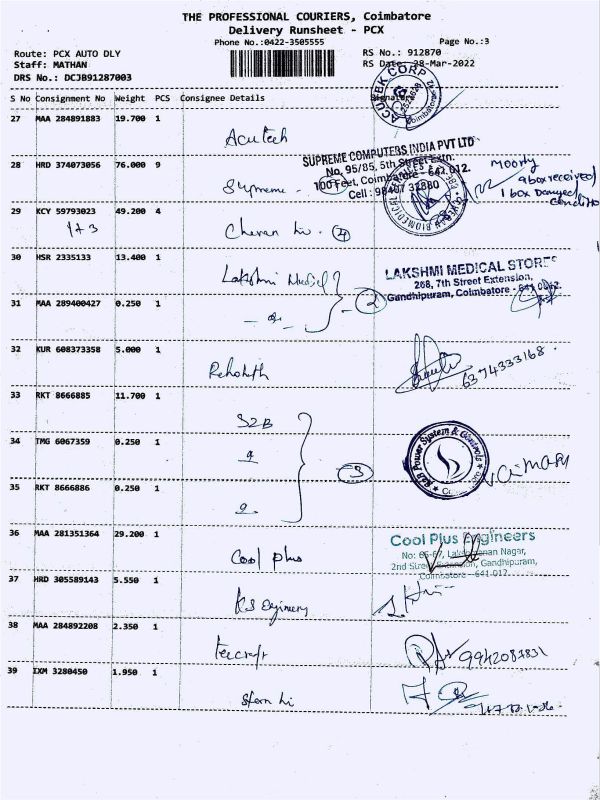 THE PROFESSIONAL COURIERS, Coimbatore
Delivery Runsheet - PCX
Phone No.:0422-3505555
Page No.:3
Route: PCX AUTO DLY
RS No.: 912870
Staff: MATHAN
RS Date: 28-Mar-2022
DRS No.: DCJB91287003
S No Consignment No Weight PCS Consignee Details Signature
ACUTEK CORP
Coimbatore
27 MAA 284891883 19.700 1
Acutech
SUPREME COMPUTERS INDIA PVT LTD
No. 95/85, 5th Street Extn.
100 Feet, Coimbatore - 641 012.
Cell : 98407 32880
28 HRD 374073056 76.000 9
Supreme -
9 box received
1 box Damaged
29 KCY 59793023 49.200 4
1+3
Cheran (4)
BIOMEDICAL
30 HSR 2335133 13.400 1
Lakshmi Medical
LAKSHMI MEDICAL STORES
268, 7th Street Extension,
Gandhipuram, Coimbatore - 641 012.
31 MAA 289400427 0.250 1
2
32 KUR 608373358 5.000 1
6374333168
33 RKT 8666885 11.700 1
S2B
34 TMG 6067359 0.250 1
3
Power System & Controls
35 RKT 8666886 0.250 1
36 MAA 281351364 29.200 1
Cool plus
Cool Plus Engineers
No: 65-67, Lakshmanan Nagar,
2nd Street Extension, Gandhipuram,
Coimbatore - 641 012
37 HRD 305589143 5.550 1
KS Enginery
38 MAA 284892208 2.350 1
teecraft
9942087831
39 IXM 3280450 1.950 1